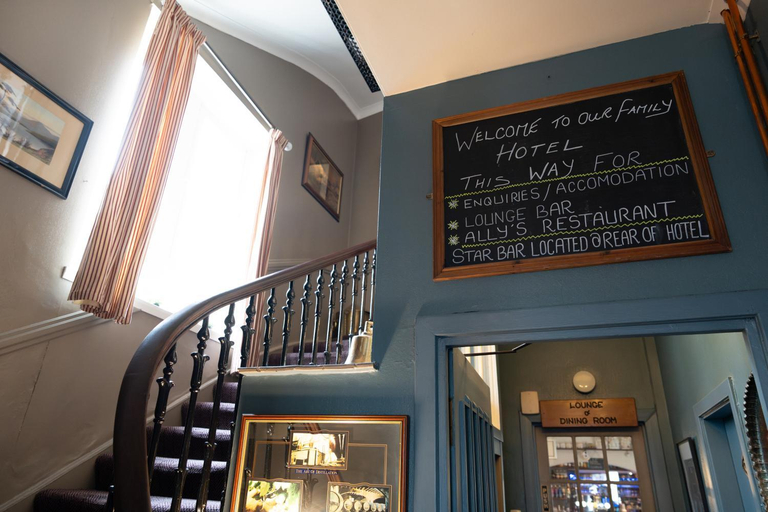 WELCOME TO OUR FAMILY
HOTEL
THIS WAY FOR
ENQUIRIES/ACCOMODATION
LOUNGE BAR
ALLY'S RESTAURANT
STAR BAR LOCATED @ REAR OF HOTEL
LOUNGE
&
DINING ROOM